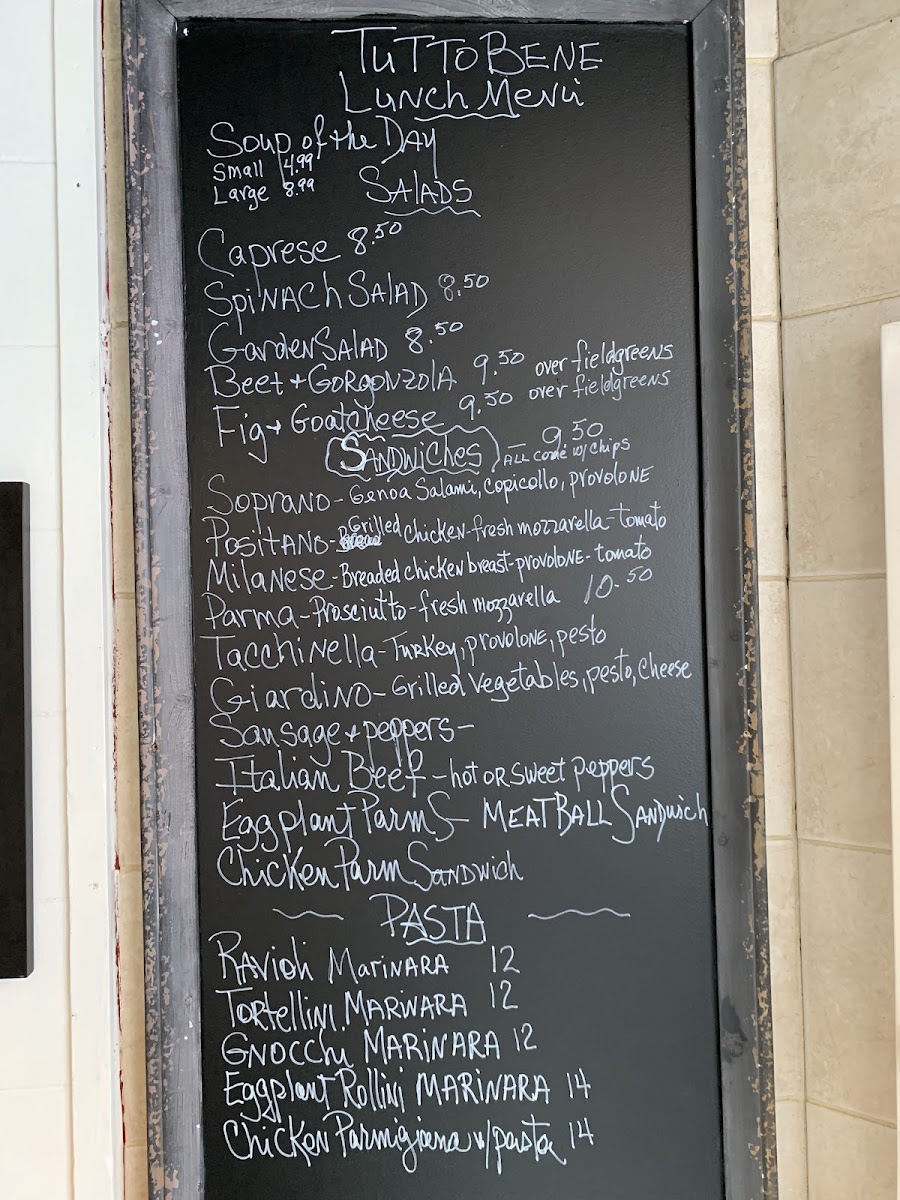 TUTTO BENE
Lunch Menu
Soup of the Day
Small 4.99
Large 8.99
SALADS
Caprese 8.50
SpiNACh SALAD 8.50
GardenSALAD 8.50
Beet + GORGONZOLA 9.50 over fieldgreens
Fig + Goatcheese 9.50 over fieldgreens
SANDWICHES — 9.50
ALL come w/ chips
Soprano - Genoa Salami, copicollo, provolone
Positano - Grilled chicken - fresh mozzarella - tomato
Milanese - Breaded chicken breast - provolone - tomato
Parma - Prosciutto - fresh mozzarella 10.50
Tacchinella - Turkey, provolone, pesto
Giardino - Grilled Vegetables, pesto, cheese
Sausage + peppers -
Italian Beef - hot OR sweet peppers
Eggplant Parm S - MEATBALL SANDwich
Chicken Parm SANDwich
PASTA
RAvioli MARINARA 12
Tortellini MARINARA 12
GNOCChi MARINARA 12
Eggplant Rollini MARINARA 14
Chicken Parmigiana w/pasta 14